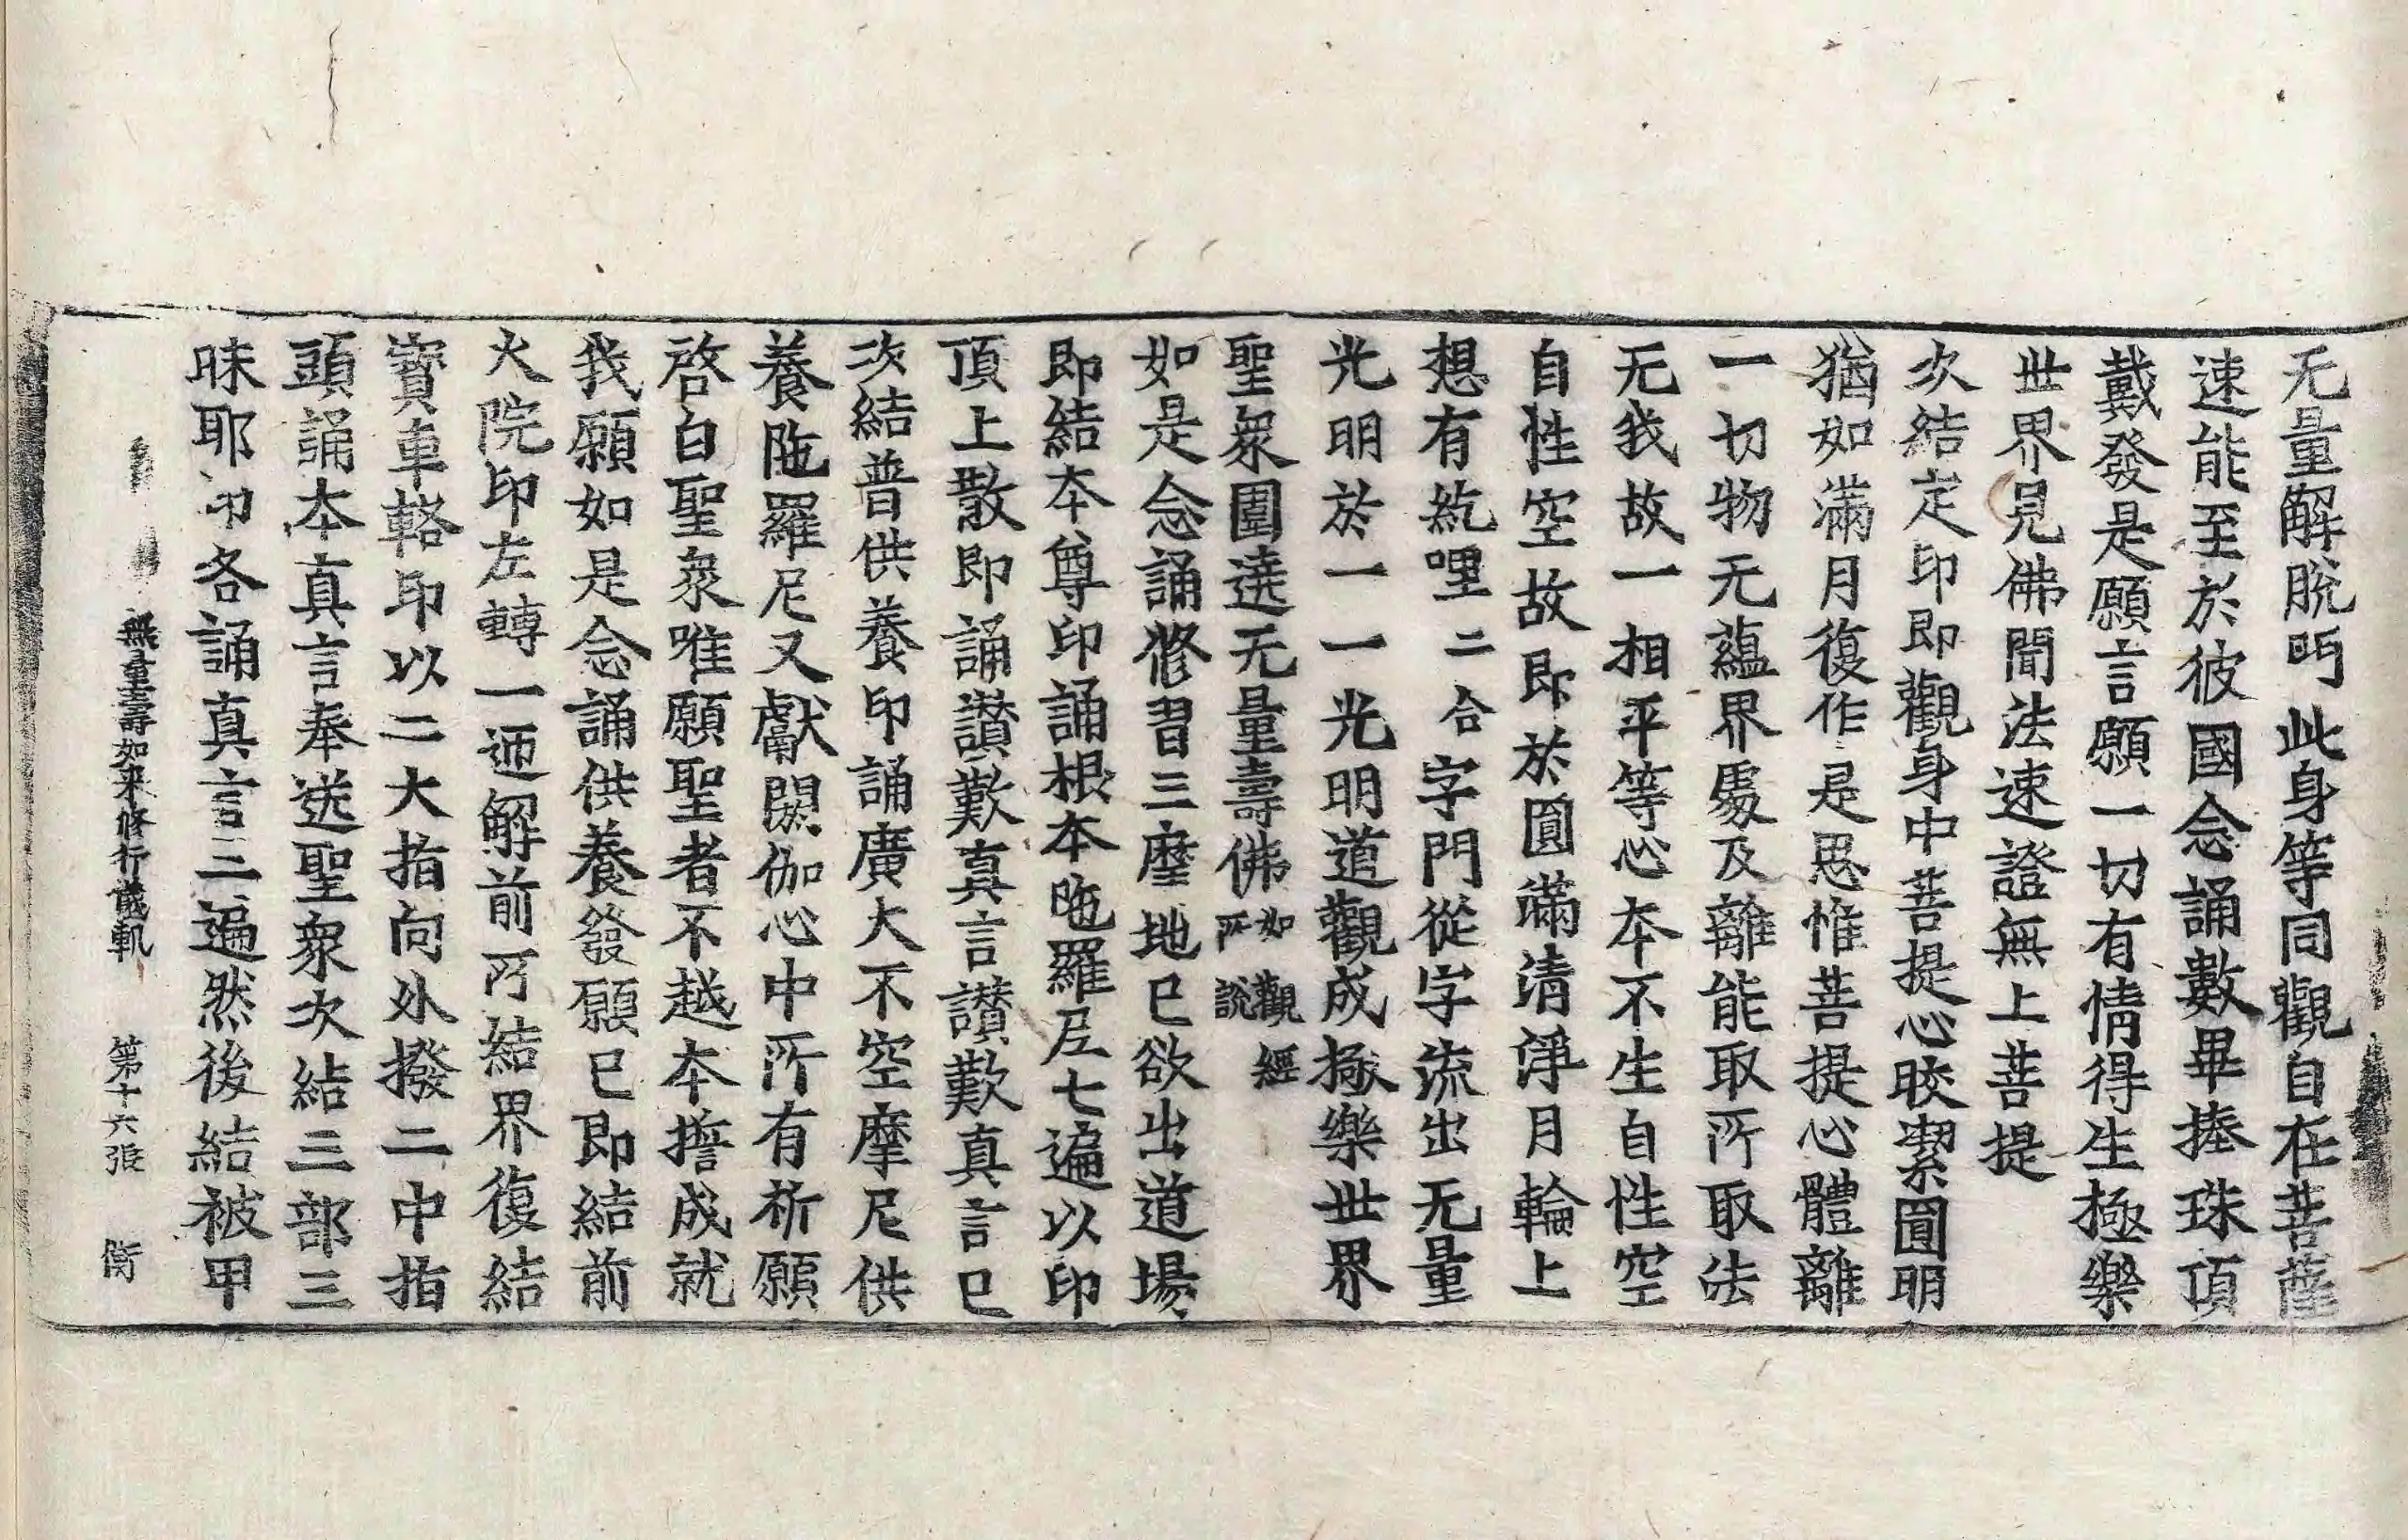 无量解脫門此身等同觀自在菩薩
速能至於彼國念誦數畢捧珠頂
戴發是願言願一切有情得生極樂
世界見佛聞法速證無上菩提
次結定印即觀身中菩提心皎潔圓明
猶如滿月復作是思惟菩提心體離
一切物无蘊界處及離能取所取法
无我故一相平等心本不生自性空
自性空故即於圓滿清淨月輪上
想有紇哩二合字門從字流出无量
光明於一一光明道觀成極樂世界
聖衆圍遶无量壽佛如觀經所說
如是念誦修習三摩地已欲出道場
即結本尊印誦根本陁羅尼七遍以印
頂上散即誦讚歎真言讚歎真言已
次結普供養印誦廣大不空摩尼供
養陁羅尼又獻閼伽心中所有祈願
啓白聖衆唯願聖者不越本擔成就
我願如是念誦供養發願已即結前
火院印左轉一迊解前所結界復結
寳車輅印以二大指向外撥二中指
頭誦本真言奉送聖衆次結三部三
昧耶印各誦真言三遍然後結被甲
無量壽如来修行儀軌 第十六張 衡